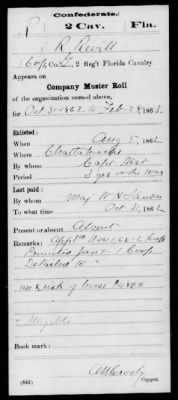 Confederate.
R 2 Cav. Fla.
R. Revill
Corp, Co. 2 Reg't Florida Cavalry
Appears on
Company Muster Roll
of the organization named above,
for Oct 31 1862 to Feb 28, 1863.
Enlisted:
When Aug 5, 1862
Where Chattahoochee
By whom Capt
Period 3 yrs or the war
Last paid:
By whom Maj W H
To what time Oct 31, 1862
Present or absent Absent
Remarks: Nov 1 62 - 2 Corp
Promoted Jany 1 Corp
Detailed to
use & risk of horse
Illegible
Book mark:
(642) Copyist.